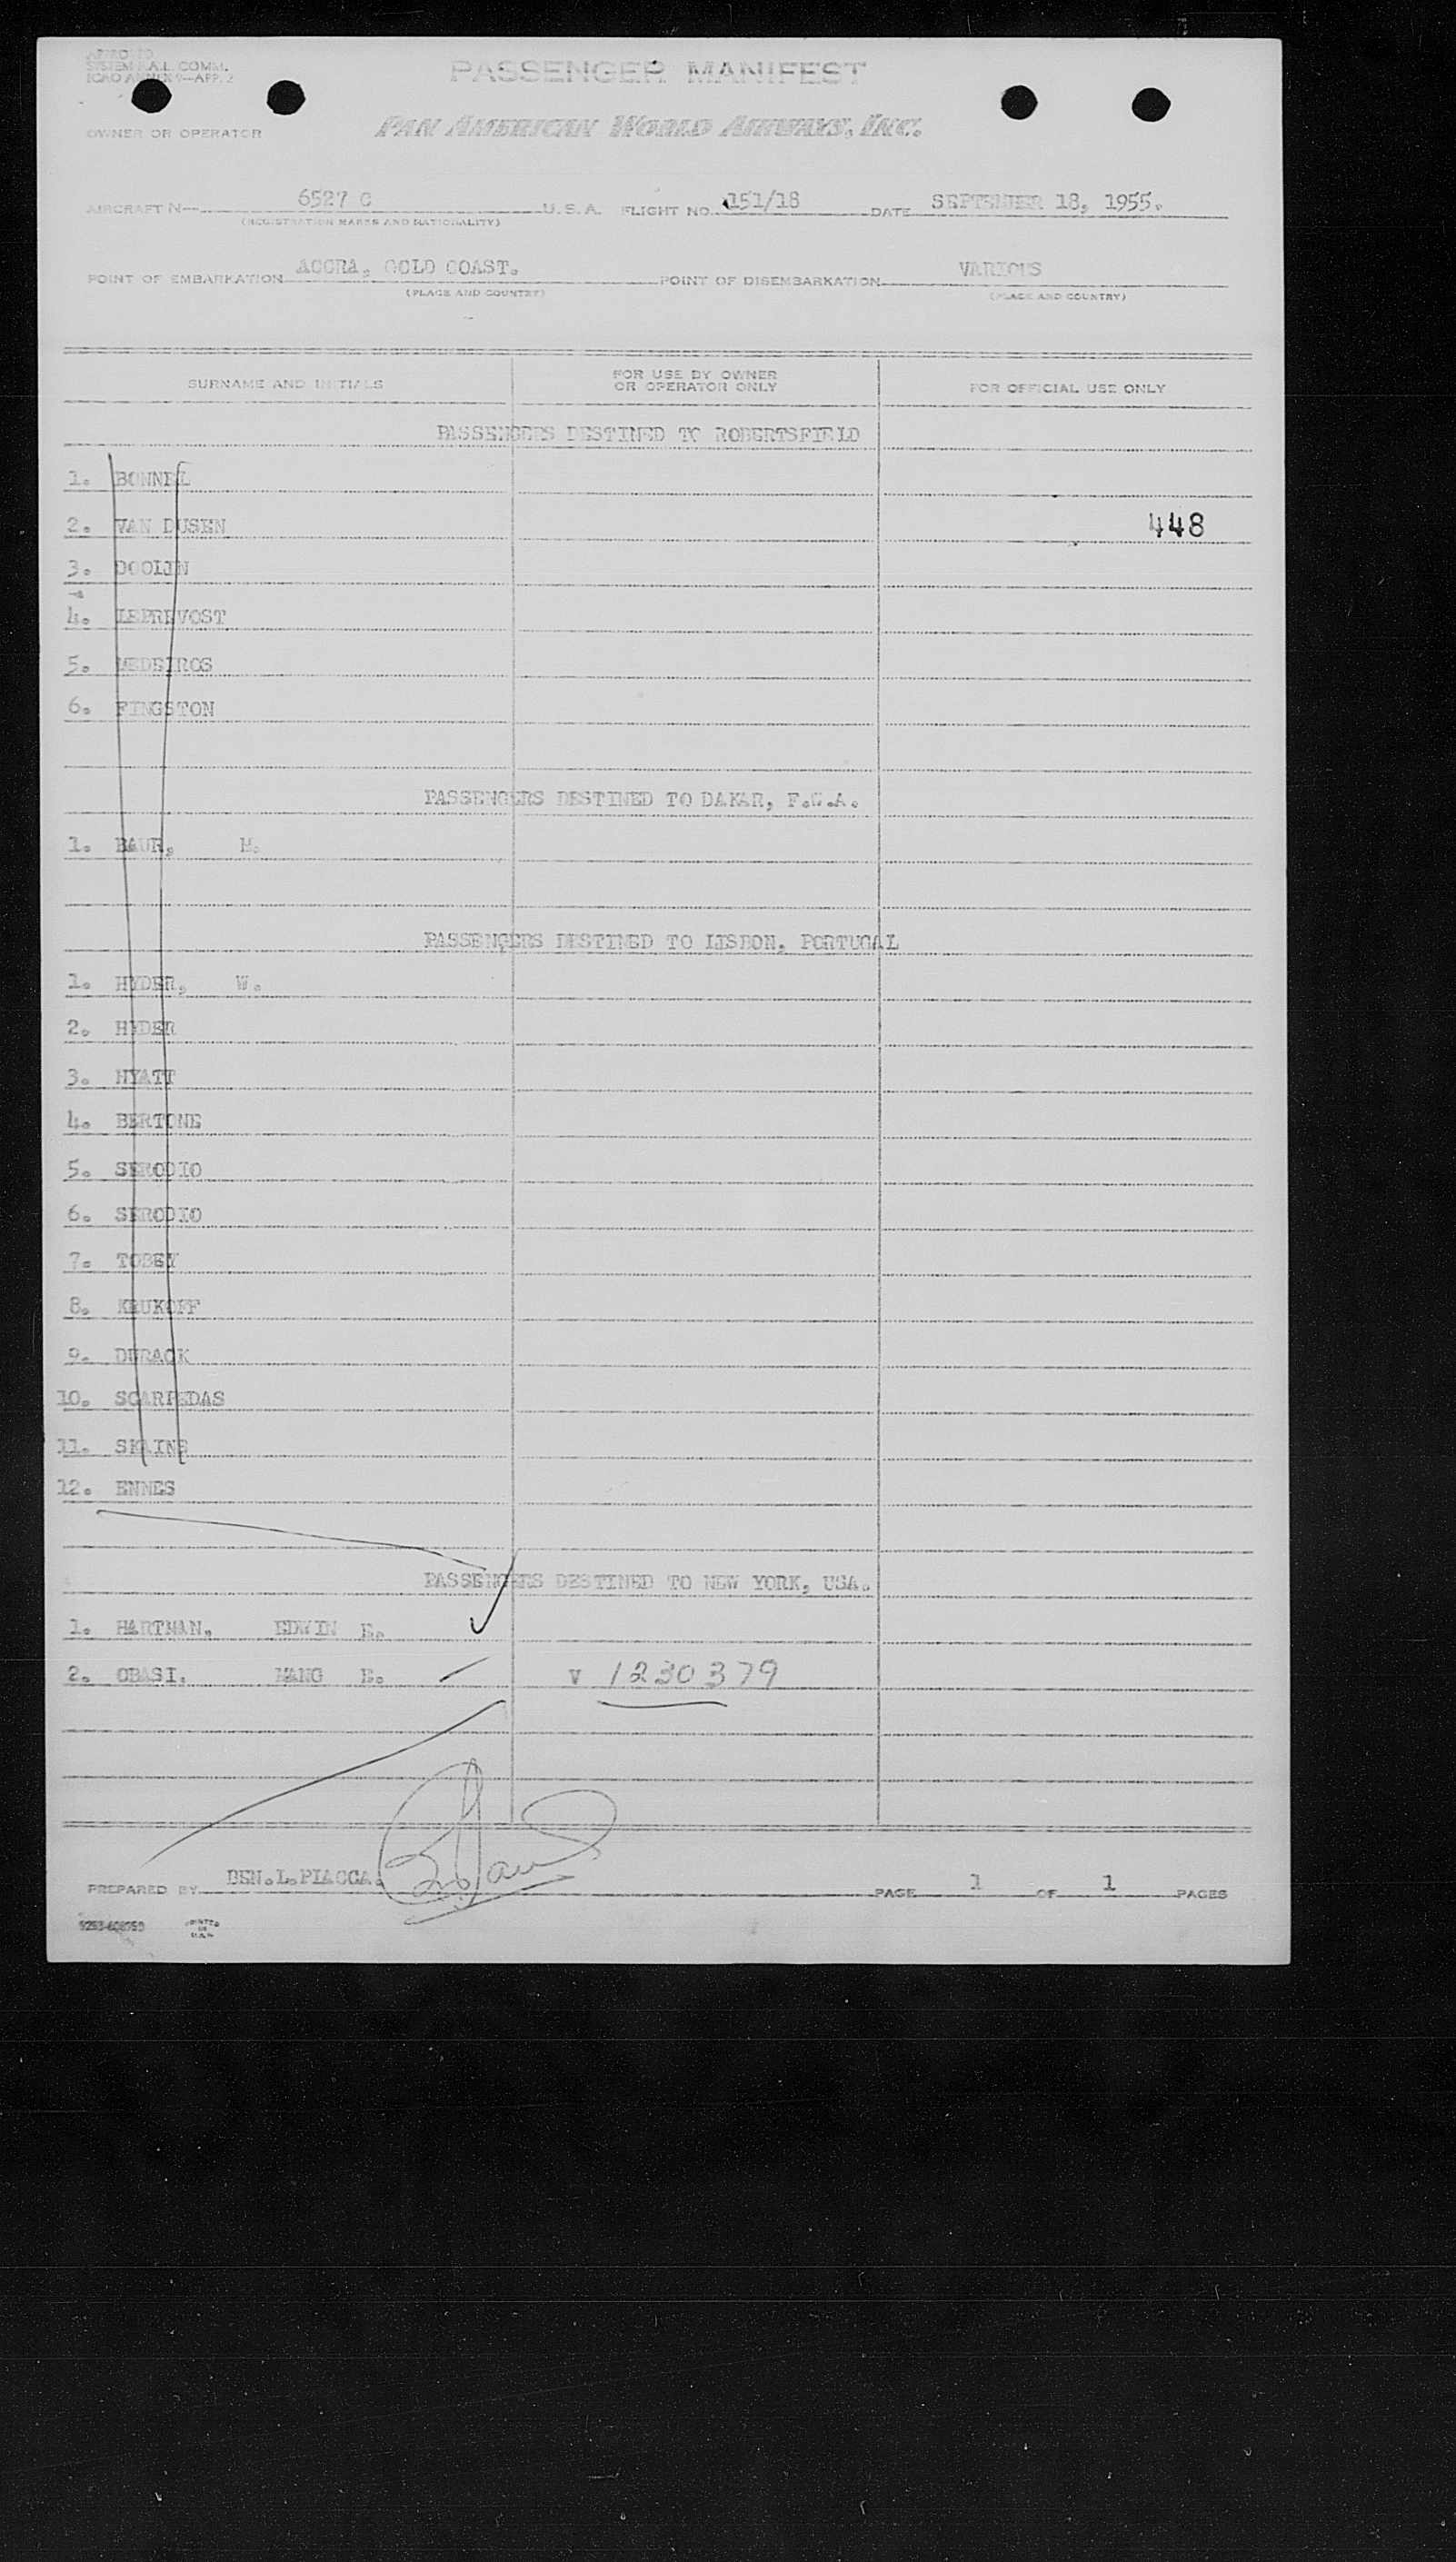 PASSENGER MANIFEST
SYSTEM F.A.L. COMM.
ICAO ANNEX 9—APP. 2
OWNER OR OPERATOR PAN AMERICAN WORLD AIRWAYS, INC.
AIRCRAFT N— 6527 C U.S.A. FLIGHT NO. 151/18 DATE SEPTEMBER 18, 1955.
(REGISTRATION MARKS AND NATIONALITY)
POINT OF EMBARKATION ACCRA, GOLD COAST. POINT OF DISEMBARKATION VARIOUS
(PLACE AND COUNTRY) (PLACE AND COUNTRY)
SURNAME AND INITIALS FOR USE BY OWNER OR OPERATOR ONLY FOR OFFICIAL USE ONLY
PASSENGERS DESTINED TO ROBERTSFIELD
1. BONNEL
2. VAN DUSEN 448
3. DOOLIN
4. LEPREVOST
5. MEDEIROS
6. FINGSTON
PASSENGERS DESTINED TO DAKAR, F.W.A.
1. BAUR, H.
PASSENGERS DESTINED TO LISBON, PORTUGAL
1. HYDER, W.
2. HYDER
3. HYATT
4. BERTONE
5. SERODIO
6. SERODIO
7. TOBEY
8. KRUKOFF
9. DURACK
10. SCARPEDAS
11. SKAINE
12. ENNES
PASSENGERS DESTINED TO NEW YORK, USA.
1. HARTMAN, EDWIN E.
2. OBASI, MANG E. V 1230379
PREPARED BY BEN.L.PIACCA. PAGE 1 OF 1 PAGES
PRINTED IN U.S.A.